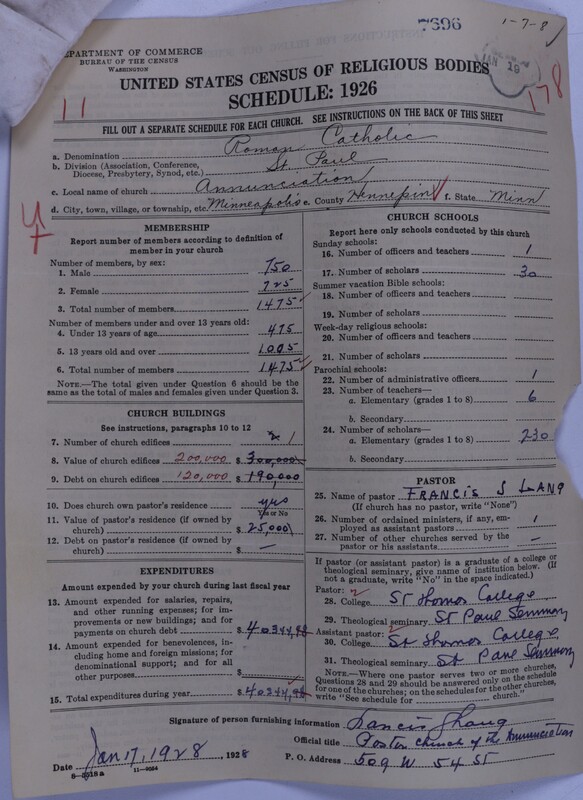 7696
1-7-8
DEPARTMENT OF COMMERCE
BUREAU OF THE CENSUS
WASHINGTON
UNITED STATES CENSUS OF RELIGIOUS BODIES
SCHEDULE: 1926
JAN 19
11
178
FILL OUT A SEPARATE SCHEDULE FOR EACH CHURCH. SEE INSTRUCTIONS ON THE BACK OF THIS SHEET
a. Denomination Roman Catholic
b. Division (Association, Conference, Diocese, Presbytery, Synod, etc.) St. Paul
c. Local name of church Annunciation
d. City, town, village, or township, etc. Minneapolis e. County Hennepin f. State Minn
MEMBERSHIP
Report number of members according to definition of
member in your church
Number of members, by sex:
1. Male 750
2. Female 725
3. Total number of members 1475
Number of members under and over 13 years old:
4. Under 13 years of age
5. 13 years old and over
6. Total number of members 1475
NOTE.—The total given under Question 6 should be
same as the total of males and females given under Question 3.
CHURCH BUILDINGS
See instructions, paragraphs 10 to 12
7. Number of church edifices 1
8. Value of church edifices 200,000 $ 300,000
9. Debt on church edifices 120,000 $ 190,000
10. Does church own pastor's residence yes
Yes or No
11. Value of pastor's residence (if owned by
church) $ 25,000
12. Debt on pastor's residence (if owned by
church) $ —
EXPENDITURES
Amount expended by your church during last fiscal year
13. Amount expended for salaries, repairs,
and other running expenses; for im-
provements or new buildings; and for
payments on church debt $ 40344,98
14. Amount expended for benevolences,
including home and foreign missions; for
denominational support; and for all
other purposes $
15. Total expenditures during year $ 40344,98
CHURCH SCHOOLS
Report here only schools conducted by this church
Sunday schools:
16. Number of officers and teachers 1
17. Number of scholars 30
Summer vacation Bible schools:
18. Number of officers and teachers
19. Number of scholars
Week-day religious schools:
20. Number of officers and teachers
21. Number of scholars
Parochial schools:
22. Number of administrative officers 1
23. Number of teachers—
a. Elementary (grades 1 to 8) 6
b. Secondary
24. Number of scholars—
a. Elementary (grades 1 to 8) 230
b. Secondary
PASTOR
25. Name of pastor FRANCIS J LANG
(If church has no pastor, write "None")
26. Number of ordained ministers, if any, em-
ployed as assistant pastors 1
27. Number of other churches served by the
pastor or his assistants —
If pastor (or assistant pastor) is a graduate of a college or
theological seminary, give name of institution below. (If
not a graduate, write "No" in the space indicated.)
Pastor:
28. College St Thomas College
29. Theological seminary St Paul Seminary
Assistant pastor:
30. College St Thomas College
31. Theological seminary St Paul Seminary
NOTE.—Where one pastor serves two or more churches,
Questions 28 and 29 should be answered only on the schedule
for one of the churches; on the schedules for the other churches,
write "See schedule for church."
Signature of person furnishing information Francis J Lang
Official title Pastor Church of the Annunciation
Date Jan 17, 1928, 1928 P. O. Address 509 W 54 ST
8—3518 a 11—9054